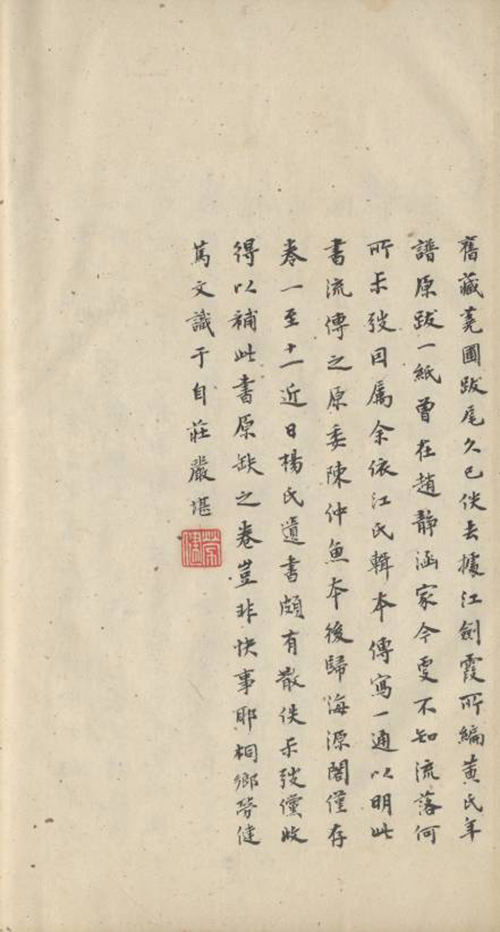 舊藏蕘圃跋尾久已佚去據江劍霞所編黃氏年
譜原跋一紙曾在趙靜涵家今更不知流落何
所示弢因屬余依江氏輯本傳寫一通以明此
書流傳之原委陳仲魚本後歸海源閣僅存
卷一至十一近日楊氏遺書頗有散佚示弢儻收
得以補此書原缺之卷豈非快事耶桐鄉勞健
篤文識于自莊嚴堪
勞健